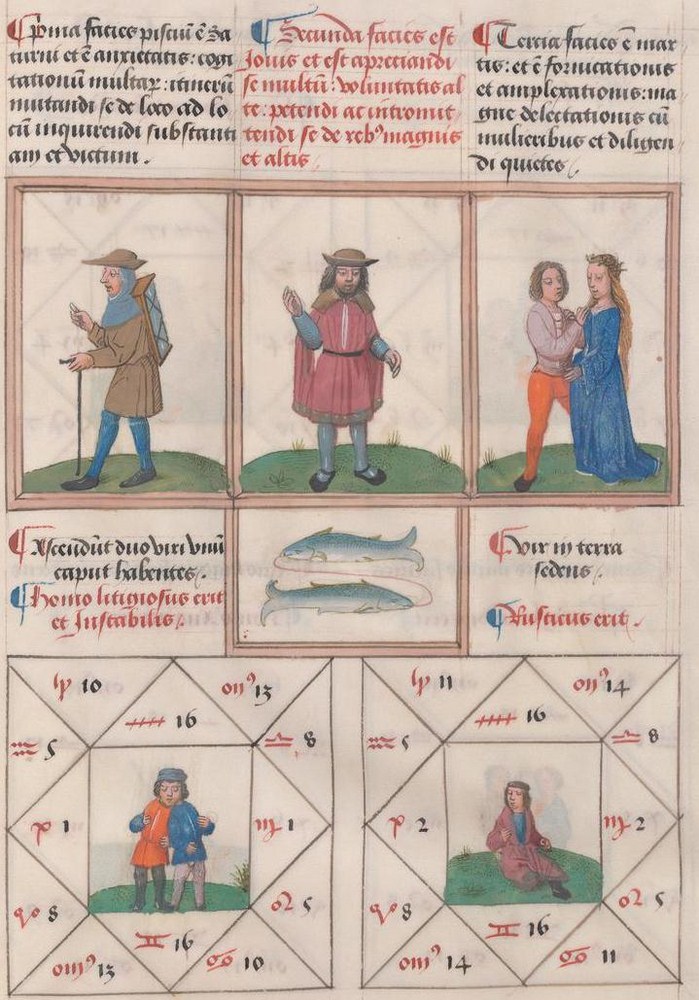 Prima facies pisciū ē Sa
turni et ē anxietatis: cogi
tationū multaꝝ: itinerū
mutandi se de loco ad lo
cū inquirendi substanti
am et victum.
Secunda facies est
Jouis et est apreciandi
se multū: voluntatis al
te: petendi ac intromit
tendi se de rebꝰ magnis
et altis.
Tercia facies ē mar
tis: et ē fornicationis
et amplexationis: ma
gne delectationis cū
mulieribus et diligen
di quietes.
Ascendūt duo viri vnū
caput habentes.
Homo litigiosus erit
et Instabilis.
vir in terra
sedens.
Rusticus erit.
10
13
16
♒ 5
♎ 8
1
♏ 1
8
♌ 5
♊ 16
13
♋ 10
11
14
16
♒ 5
♎ 8
2
♏ 2
8
♌ 5
♊ 16
14
♋ 11